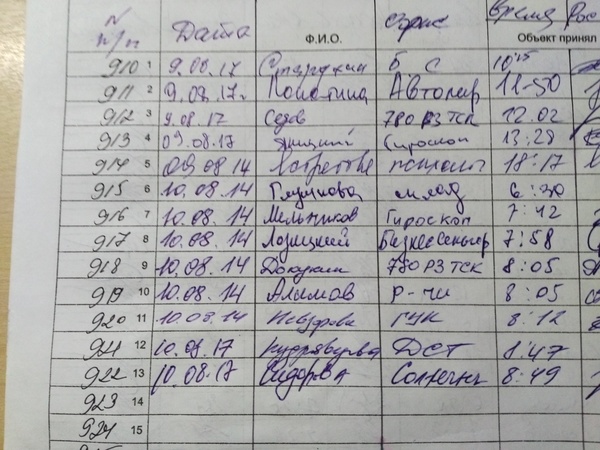 N п/п Дата Ф.И.О. Офис Время Рос
Объект принял
910 1 9.08.17 Б С 10 15
911 2 9.08.17г. Автопар 11-50
912 3 9.08.17 Седов 780 РЗ ТСК 12.02
913 4 09.08.17 Гироскоп 13:28
914 5 09.08 14 18:17
915 6 10.08.14 склад 6:30
916 7 10.08.14 Мельников Гироскоп 7:42
917 8 10.08.14 Лозицкий БизнесСеньтер 7:58
918 9 10.08.14 Докукин 780 РЗ ТСК 8:05
919 10 10.08.14 Алимов Р-чи 8:05
920 11 10.08.14 ГУК 8:12
921 12 10.08.17 Кудрявцева ДСТ 8:47
922 13 10.08.17 Сидорова 8:49
923 14
924 15